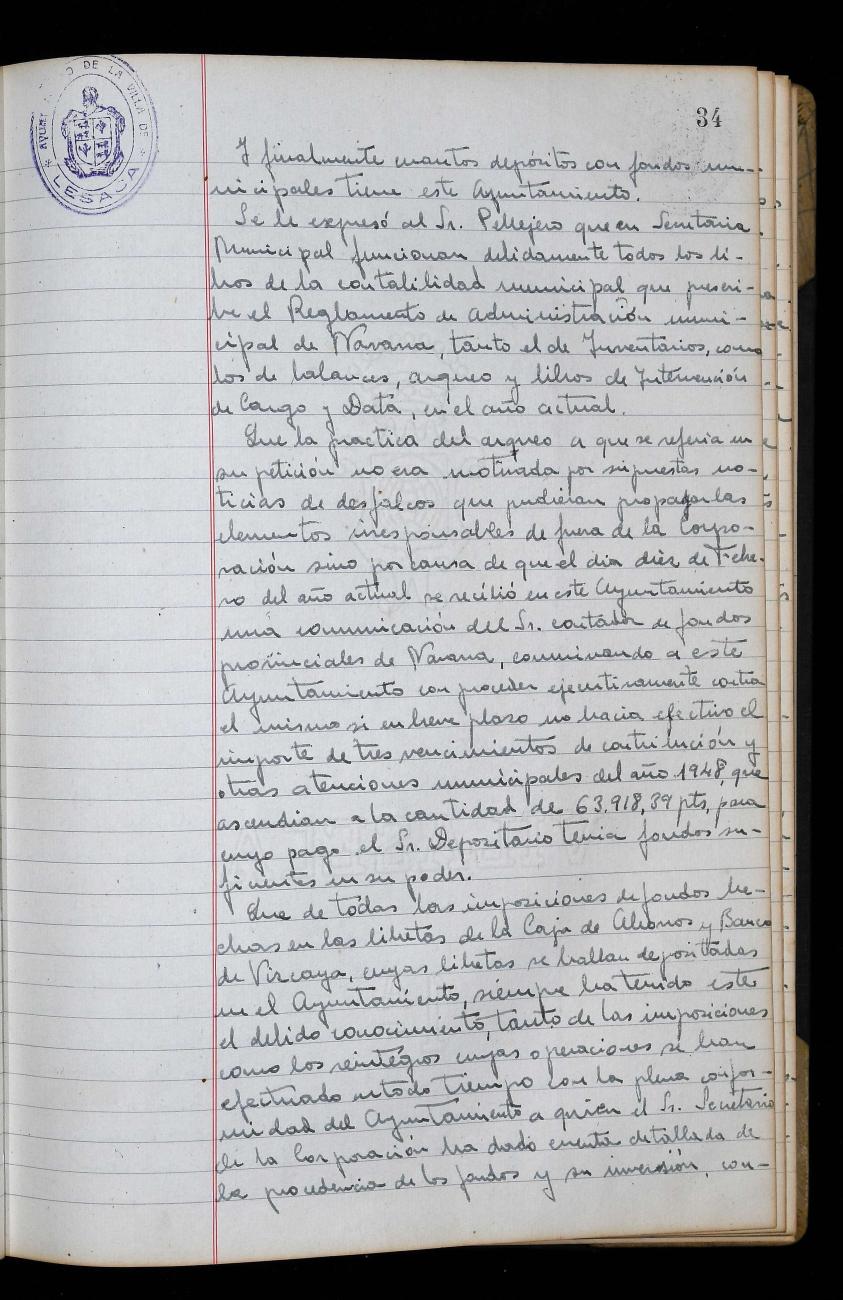 34
AYUNTAMIENTO DE LA VILLA DE
LESACA
Y finalmente cuantos depósitos con fondos mu-
nicipales tiene este Ayuntamiento.
Se le expresó al Sr. Pellejero que en Secretaria
Municipal funcionan debidamente todos los li-
bros de la contabilidad municipal que prescri-
be el Reglamento de Administración muni-
cipal de Navarra, tanto el de Inventarios, como
los de balances, arqueo y libros de Intervención
de Cargo y Data, en el año actual.
Que la practica del arqueo a que se referia en
su petición no era motivada por supuestas no-
ticias de desfalcos que pudieran propagar las
elementos irresponsables de fuera de la Corpo-
ración sino por causa de que el dia diez de Febre-
ro del año actual se recibió en este Ayuntamiento
una comunicación del Sr. contador de fondos
provinciales de Navarra, conminando a este
Ayuntamiento con proceder ejecutivamente contra
el mismo si en breve plazo no hacia efectivo el
importe de tres vencimientos de contribución y
otras atenciones municipales del año 1948, que
ascendian a la cantidad de 63.918,39 pts, para
cuyo pago el Sr. Depositario tenia fondos su-
ficientes en su poder.
Que de todas las imposiciones de fondos he-
chas en las libretas de la Caja de Ahorros y Banco
de Vizcaya, cuyas libretas se hallan depositadas
en el Ayuntamiento, siempre ha tenido este
el debido conocimiento, tanto de las imposiciones
como los reintegros cuyas operaciones se han
efectuado en todo tiempo con la plena confor-
midad del Ayuntamiento a quien el Sr. Secretario
de la Corporación ha dado cuenta detallada de
la procedencia de los fondos y su inversión, con-